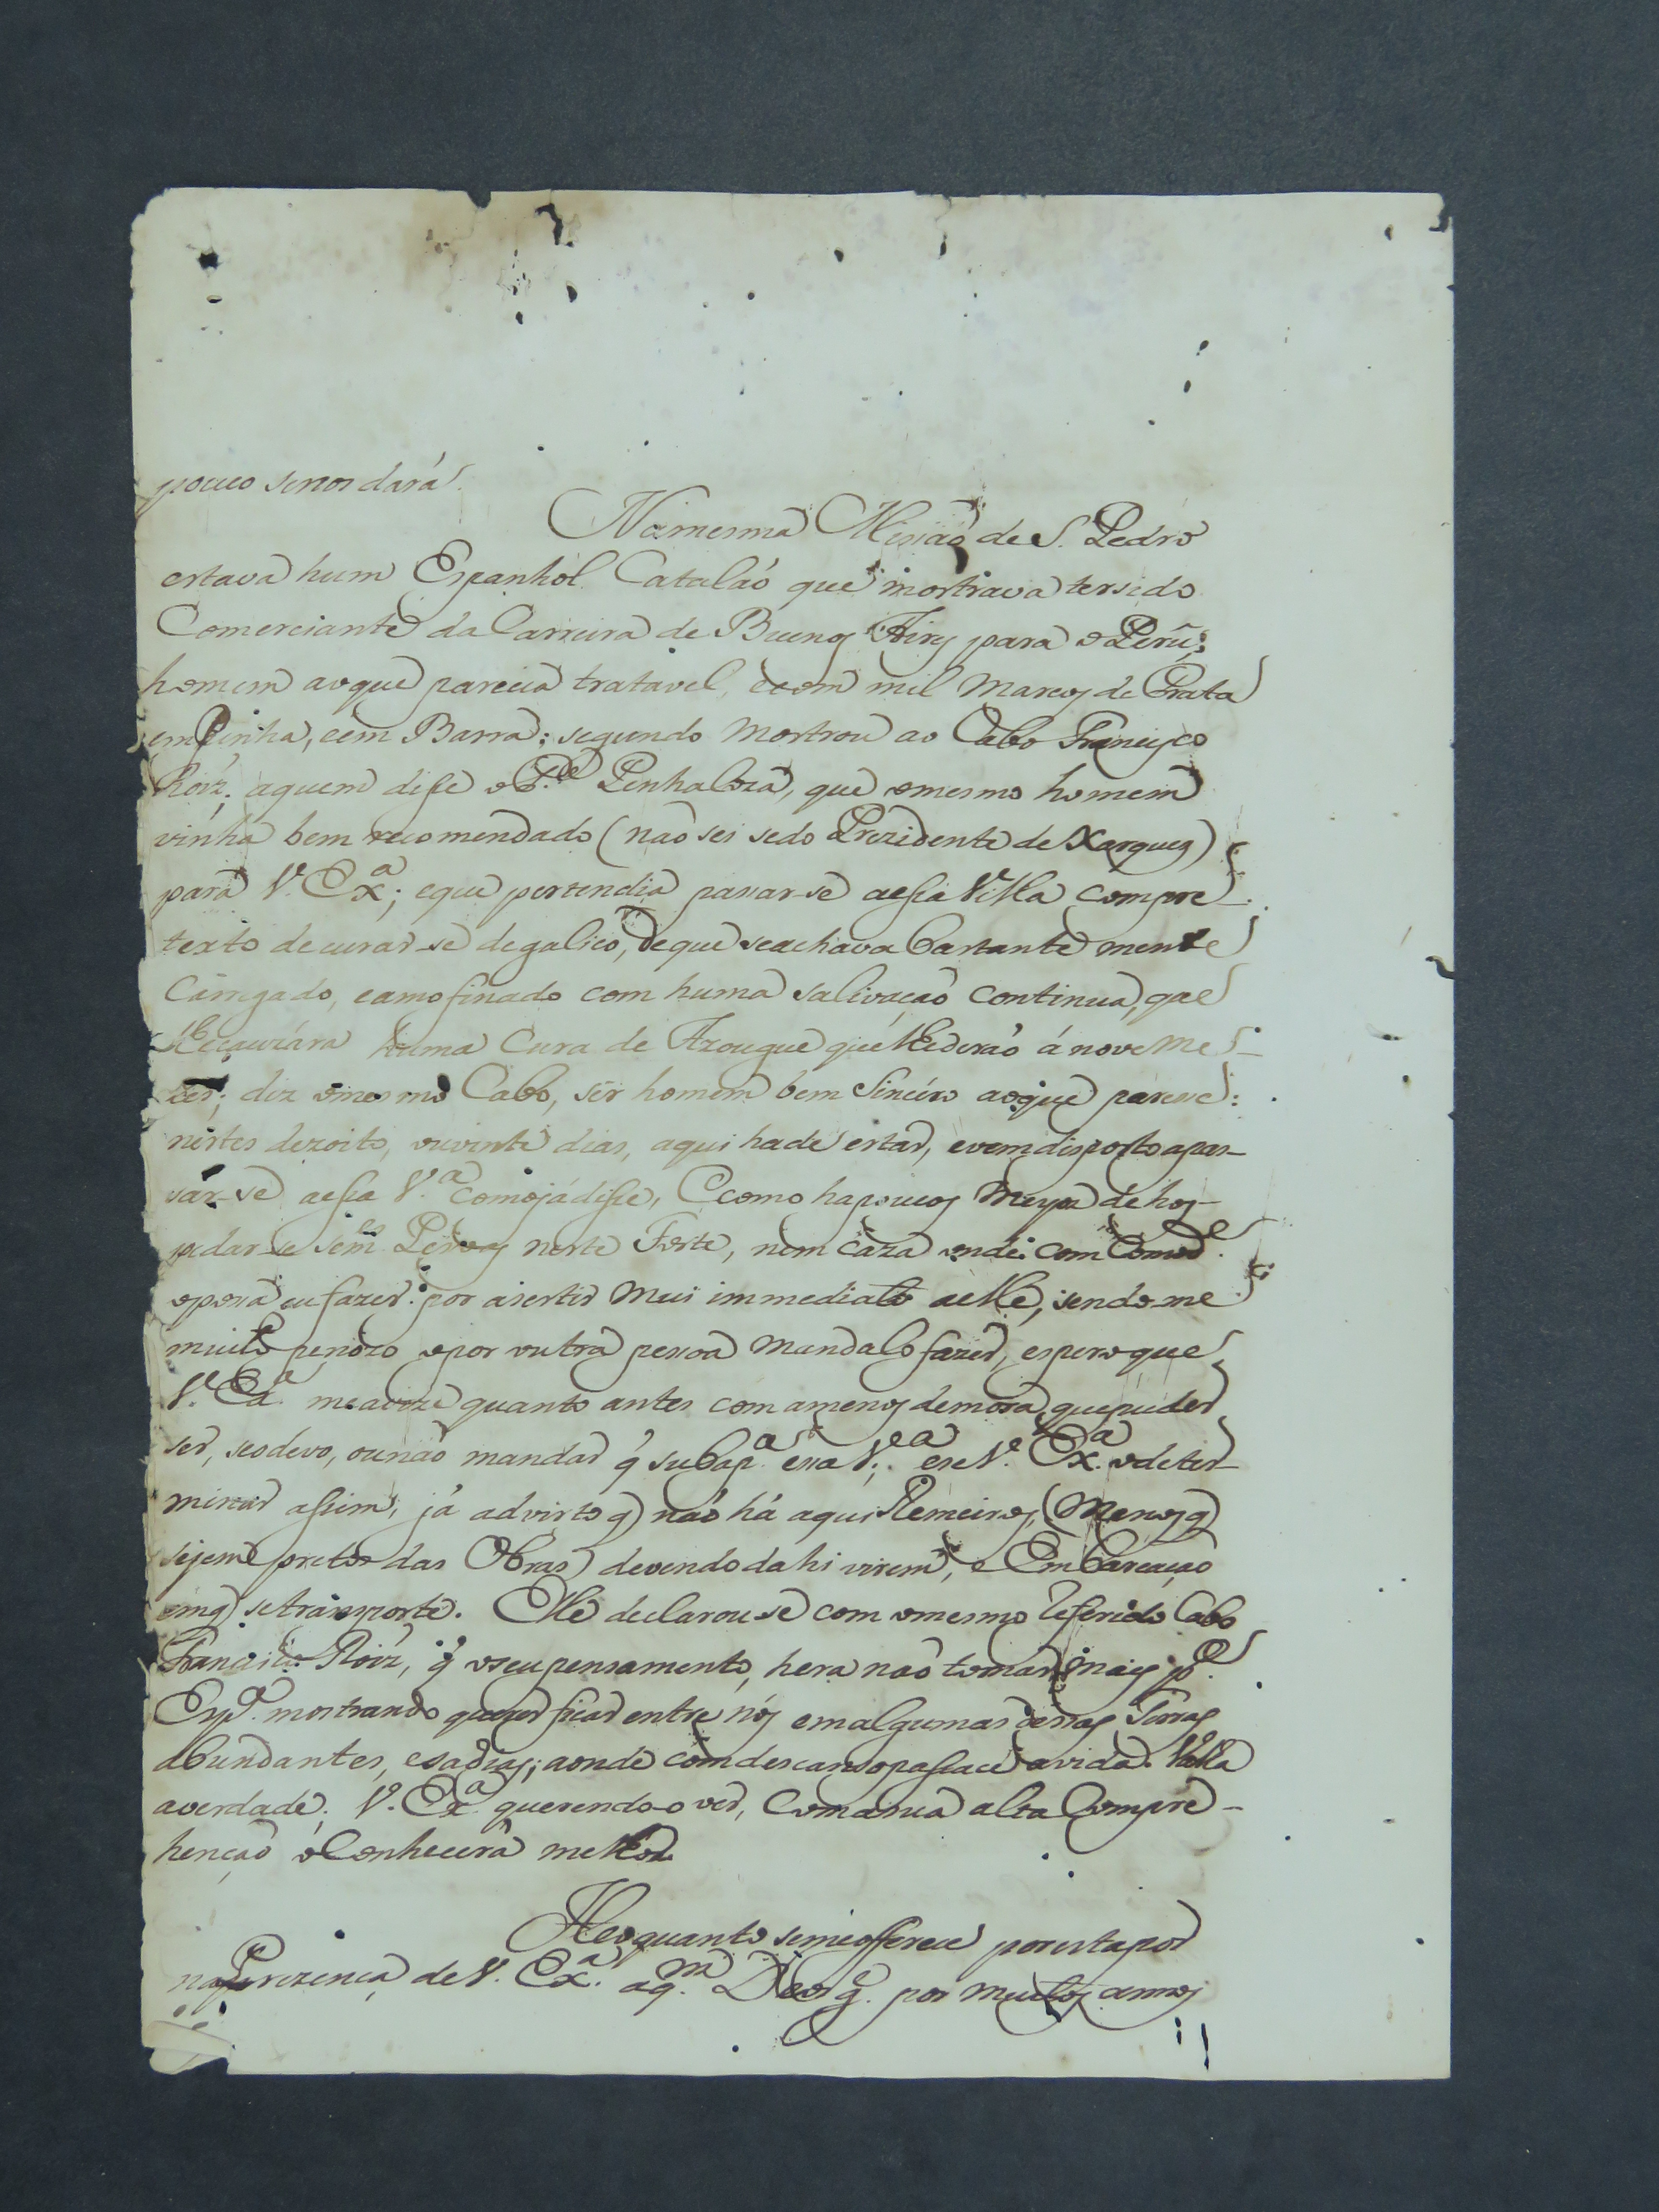 pouco senos dará.
Na mesma Missaõ de S. Pedro
estava hum Espanhol Cataláo que mostrava tersido
Comerciante da Carreira de Buenos Airs para o Perú;
homem aoque parecia tratavel, ecom mil Marcos de Prata
em Pinha, eem Barra; segundo mostrou ao Cabo Francisco
Roiz; aquem disse o P.e Penhaloza, que omesmo homem
vinha bem recomendado (naõ sei sedo Prezidente de Xarques)
para V. Ex.a; eque pertendia passar-se aessa Villa compre-
texto decurar-se degalico, deque seachava bastante mente
Carregado, eamofinado com huma salivaçaõ continua, que
lhecauzára huma Cura de Azougue que lhederaõ á nove me-
zes; diz omesmo Cabo, ser homem bem Sincéro aoque parece:
nestes dezoito, ouvinte dias, aqui hade estar, evemdisposto apas-
sar-se aessa V.a comojádisse, Ecomo hapoucos Meyos de hos-
pedar-se sem.es Pessoas neste Forte, nem caza onde com Comod.e
opossa eu fazer: por asestir Mui immediato aelle, sendo-me
muito penozo opor outra pessoa mandalo fazer, espero que
V. Ex.a meavize quanto antes com amenos demora, quepuder
ser, seodevo, ounaõ mandar q̃ suba p.a essa V.a; ese V. Ex.a odeter-
minar assim, já advirto q̃ náo há aqui Remeiros, (Menos q̃
sejem pretos das Obras) devendo dahi virem, e Embarcaçaõ
emq̃ setransporte. Elle declarouse com omesmo Referido Cabo
Francisco Roiz, q̃ oseupensamento, hera naõ tornar mais p.a
Esp.a mostrando querer ficar entre nós emalgumas dessas Terras
abundantes, esadias; aonde comdescanso passace avida. Valha
averdade; V. Ex.a querendo-o ver, Comasua alta Compre-
hençaõ oConhecerá melhor.
He oquanto semeofferece poresta por
na Prezença de V. Ex.a aq.m Deos g.e por muitos annos